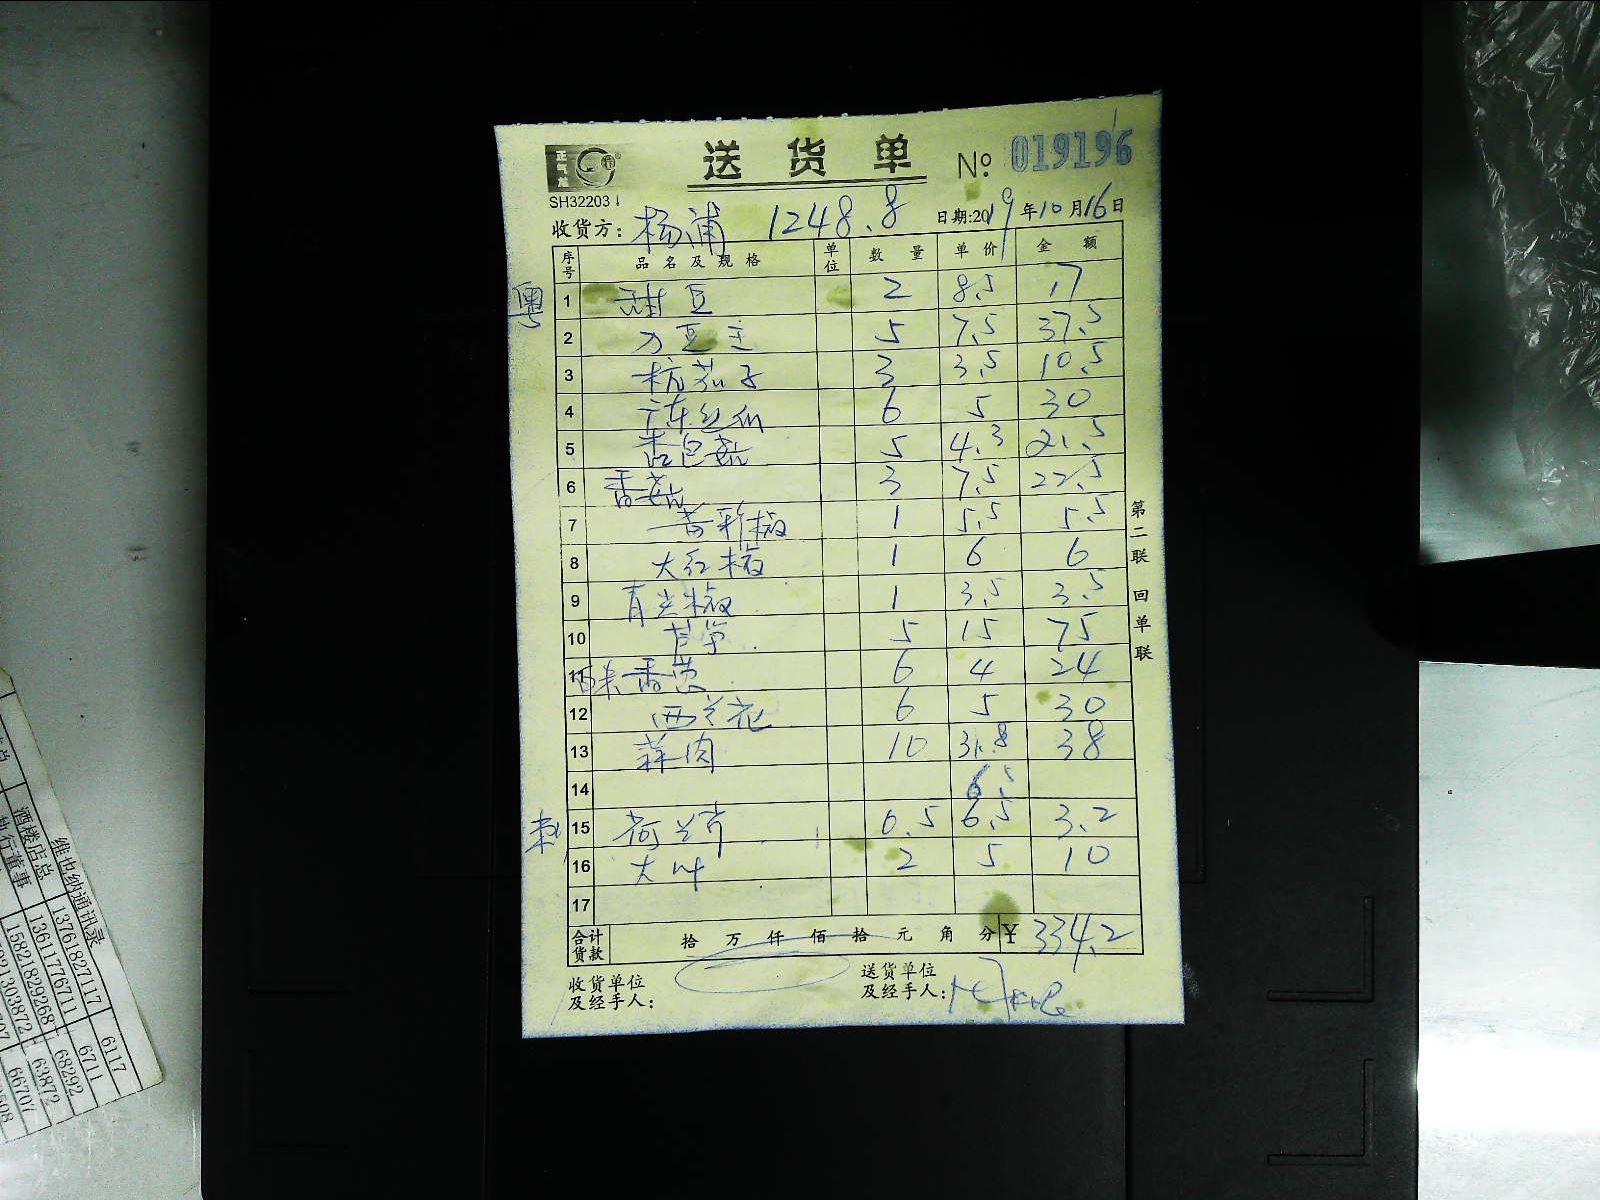 送货单 № 019196
SH32203
收货方: 杨浦 1248.8 日期:2019年10月16日
序号 品名及规格 单位 数量 单价 金额
粤 1 甜豆 2 8.5 17
2 刀豆 5 7.5 37.5
3 杭茄子 3 3.5 10.5
4 广东丝瓜 6 5 30
5 杏包菇 5 4.3 21.5
6 香菇 3 7.5 22.5
7 黄彩椒 1 5.5 5.5
8 大红椒 1 6 6
9 青尖椒 1 3.5 3.5
10 5 15 75
11 香葱 6 4 24
12 西兰花 6 5 30
13 蒜肉 10 3.8 38
14 6.5
15 荷兰芹 0.5 6.5 3.2
16 大叶 2 5 10
17
合计货款 拾万仟佰拾元角分 ¥ 334.2
收货单位及经手人: 送货单位及经手人:
第二联 回单联
酒楼店总
执行董事
维也纳通讯录
13761827117 6117
13611776711 6711
15821829268 68292
63872
66707